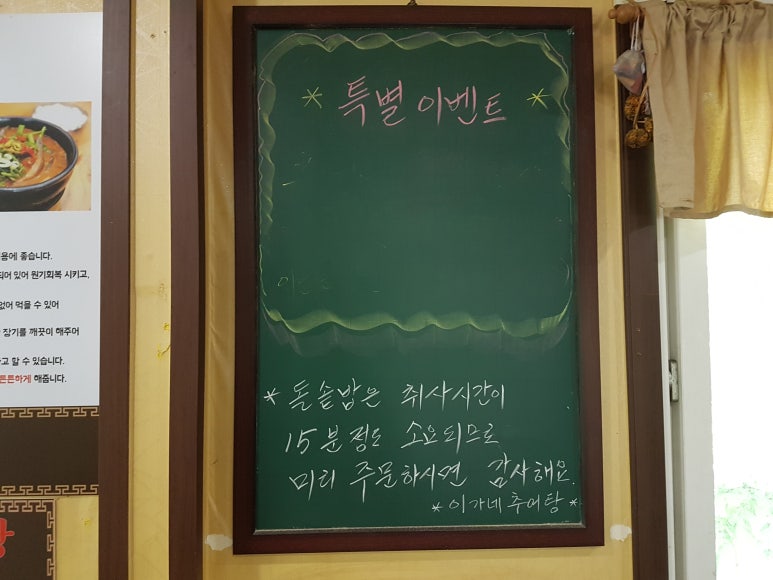 * 특별 이벤트 *
* 돌솥밥은 취사시간이
15분정도 소요되므로
미리 주문하시면 감사해요.
* 이가네추어탕 *
용에 좋습니다.
되어 있어 원기회복 시키고,
없어 먹을 수 있어
장기를 깨끗이 해주어
고 할 수 있습니다.
튼튼하게 해줍니다.